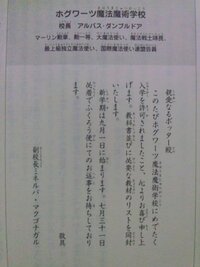 ホグワーツ魔法魔術学校
校長 アルバス・ダンブルドア
マーリン勲章、勲一等、大魔法使い、魔法戦士隊長、
最上級独立魔法使い、国際魔法使い連盟会員
親愛なるポッター殿
このたびホグワーツ魔法魔術学校にめでたく
入学を許可されましたこと、心よりお喜び申し上
げます。教科書並びに必要な教材のリストを同封
いたします。
新学期は九月一日に始まります。七月三十一日
必着でふくろう便にてのお返事をお待ちしており
ます。
敬具
副校長ミネルバ・マクゴナガル